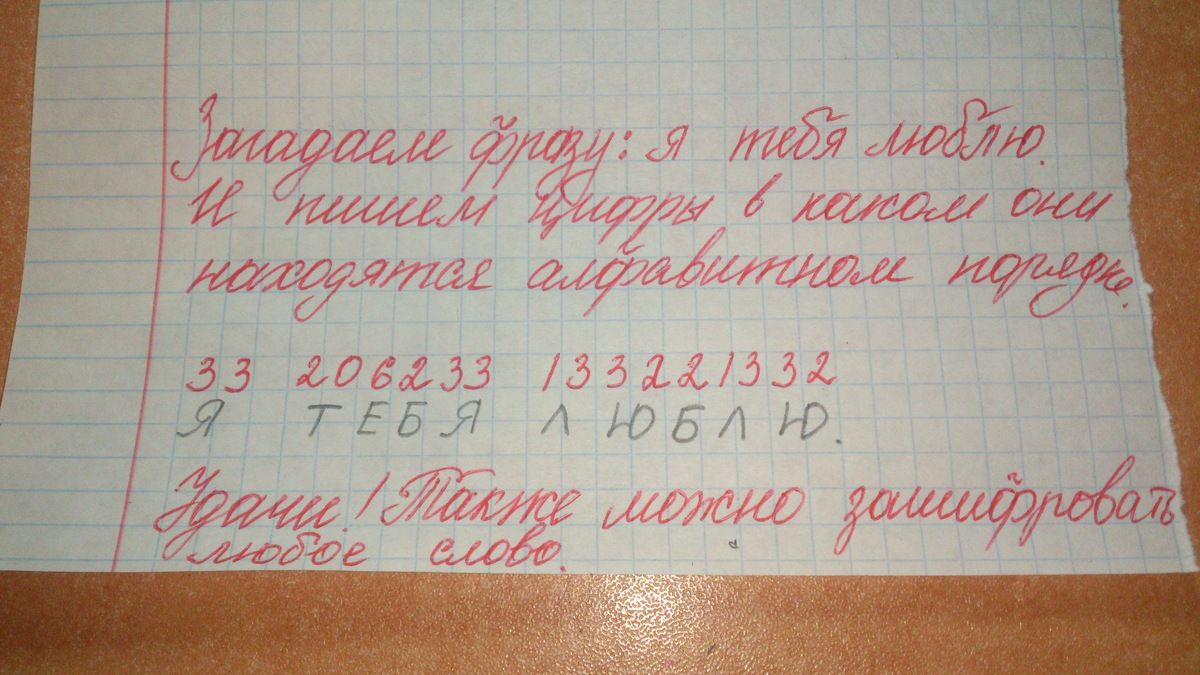 Загадаем фразу: я тебя люблю.
И пишем цифры в каком они
находятся алфавитном порядке.
33 206233 133221332
Я ТЕБЯ ЛЮБЛЮ.
Удачи! Также можно зашифровать
любое слово.